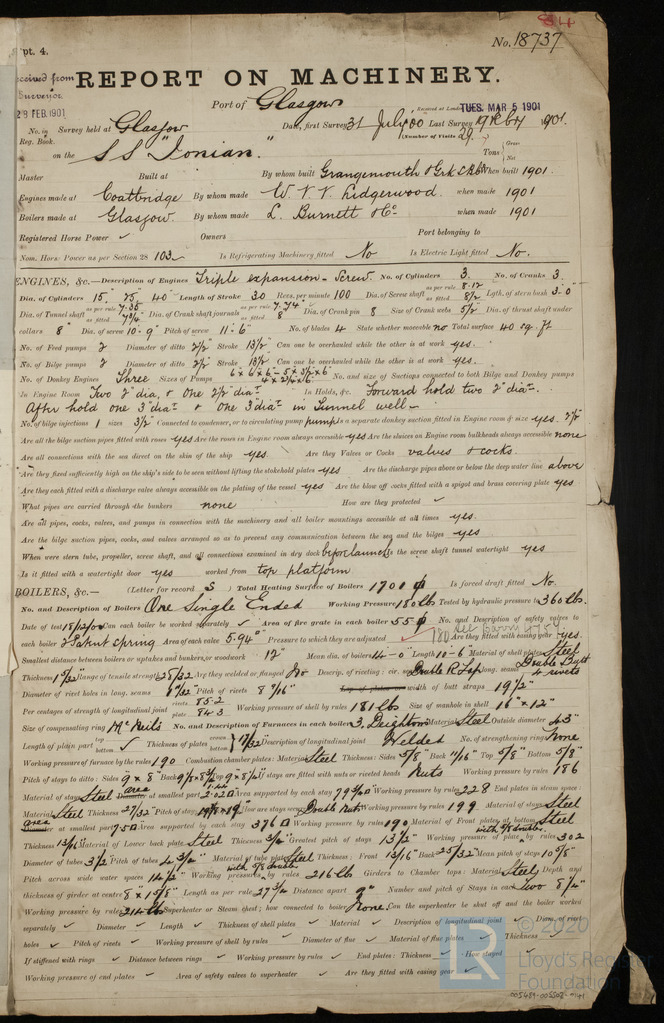 84
No. 18737
pt. 4.
REPORT ON MACHINERY.
28 FEB 1901
Port of Glasgow
Received at London TUES. MAR 5 1901
No. in Survey held at Glasgow Date, first Survey 31 July 00 Last Survey 19 Feby 1901.
Reg. Book. (Number of Visits 29.)
on the S.S. "Ionian." Tons Gross Net
Master Built at By whom built Grangemouth & Grk When built 1901.
Engines made at Coatbridge By whom made W. V. V. Lidgerwood. when made 1901
Boilers made at Glasgow. By whom made L. Burnett & Co when made 1901
Registered Horse Power ✓ Owners Port belonging to
Nom. Horse Power as per Section 28 103 Is Refrigerating Machinery fitted No Is Electric Light fitted No.
ENGINES, &c.— Description of Engines Triple expansion - Screw. No. of Cylinders 3. No. of Cranks 3
Dia. of Cylinders 15. 25. 40 Length of Stroke 30 Revs. per minute 100 Dia. of Screw shaft as per rule 8.12 as fitted 8½ Lgth. of stern bush 3.0"
Dia. of Tunnel shaft as per rule 7.35 as fitted 7¾ Dia. of Crank shaft journals as per rule 7.74 as fitted 8" Dia. of Crank pin 8 Size of Crank webs 5½ Dia. of thrust shaft under
collars 8" Dia. of screw 10-9" Pitch of screw 11-6" No. of blades 4 State whether moveable no Total surface 40 sq. ft
No. of Feed pumps 2 Diameter of ditto 2½ Stroke 13½ Can one be overhauled while the other is at work yes.
No. of Bilge pumps 2 Diameter of ditto 2½ Stroke 13½ Can one be overhauled while the other is at work yes.
No. of Donkey Engines Three Sizes of Pumps No. and size of Suctions connected to both Bilge and Donkey pumps
In Engine Room Two 2" dia, & One 2½ diar. In Holds, &c. Forward hold two 2" diar.
After hold one 3" diar & One 3" diar in Tunnel well
No. of bilge injections 1 sizes 3½ Connected to condenser, or to circulating pump pump Is a separate donkey suction fitted in Engine room & size yes. 2½
Are all the bilge suction pipes fitted with roses yes Are the roses in Engine room always accessible yes Are the sluices on Engine room bulkheads always accessible none
Are all connections with the sea direct on the skin of the ship yes. Are they Valves or Cocks valves & cocks.
Are they fixed sufficiently high on the ship's side to be seen without lifting the stokehold plates yes Are the discharge pipes above or below the deep water line above
Are they each fitted with a discharge valve always accessible on the plating of the vessel yes Are the blow off cocks fitted with a spigot and brass covering plate yes
What pipes are carried through the bunkers none How are they protected ✓
Are all pipes, cocks, valves, and pumps in connection with the machinery and all boiler mountings accessible at all times yes.
Are the bilge suction pipes, cocks, and valves arranged so as to prevent any communication between the sea and the bilges yes
When were stern tube, propeller, screw shaft, and all connections examined in dry dock before launch Is the screw shaft tunnel watertight yes
Is it fitted with a watertight door yes worked from top platform
BOILERS, &c.— (Letter for record S) Total Heating Surface of Boilers 1701 Is forced draft fitted No.
No. and Description of Boilers One Single Ended Working Pressure 180 lb Tested by hydraulic pressure to 360 lb.
Date of test 18/12/00 Can each boiler be worked separately ✓ Area of fire grate in each boiler 55 No. and Description of safety valves to
each boiler 2 Patent Spring Area of each valve 5.94" Pressure to which they are adjusted 180 Are they fitted with easing gear yes.
Smallest distance between boilers or uptakes and bunkers or woodwork 12" Mean dia. of boilers 14-0 Length 10-6 Material of shell plates Steel
Thickness 1 9/32 Range of tensile strength 28/32 Are they welded or flanged No Descrip. of riveting: cir. seams Double R. Lap long. seams Double Butt 4 rivets
Diameter of rivet holes in long. seams 1 9/32 Pitch of rivets 8 7/16" width of butt straps 19½
Per centages of strength of longitudinal joint rivets 85.2 plate 84.3 Working pressure of shell by rules 181 lb Size of manhole in shell 16" × 12"
Size of compensating ring McNeil's No. and Description of Furnaces in each boiler 3, Deighton Material Steel Outside diameter 43"
Length of plain part top bottom ✓ Thickness of plates crown bottom 17/32" Description of longitudinal joint Welded No. of strengthening rings None
Working pressure of furnace by the rules 190 Combustion chamber plates: Material Steel Thickness: Sides 5/8" Back 11/16" Top 5/8" Bottom 5/8"
Pitch of stays to ditto: Sides 9 × 8" Back Top 9 × 8½ If stays are fitted with nuts or riveted heads Nuts Working pressure by rules 186
Material of stays Steel area at smallest part 2.02 Area supported by each stay 79¾ Working pressure by rules 228 End plates in steam space:
Material Steel Thickness 27/32 Pitch of stays How are stays secured Double Nuts Working pressure by rules 199 Material of stays Steel
area at smallest part Area supported by each stay 376 Working pressure by rules 190 Material of Front plates at bottom Steel
Thickness 13/16 Material of Lower back plate Steel Thickness 3/4" Greatest pitch of stays 13½ Working pressure of plate by rules 302
Diameter of tubes 3½ Pitch of tubes 4¾" Material of tube plates Steel Thickness: Front 13/16 Back 25/32" Mean pitch of stays 10 5/8"
Pitch across wide water spaces 14½" Working pressures by rules 216 lb Girders to Chamber tops: Material Steel Depth and
thickness of girder at centre 8" × 1 5/8" Length as per rule 27¾ Distance apart 9" Number and pitch of Stays in each Two 8½"
Working pressure by rules 214 lb Superheater or Steam chest; how connected to boiler None. Can the superheater be shut off and the boiler worked
separately ✓ Diameter ✓ Length ✓ Thickness of shell plates ✓ Material ✓ Description of longitudinal joint ✓ Diam. of rivet
holes ✓ Pitch of rivets ✓ Working pressure of shell by rules ✓ Diameter of flue ✓ Material of flue plates ✓ Thickness ✓
If stiffened with rings ✓ Distance between rings ✓ Working pressure by rules ✓ End plates: Thickness ✓ How stayed ✓
Working pressure of end plates ✓ Area of safety valves to superheater ✓ Are they fitted with easing gear ✓
© 2020
LR
Lloyd's Register
Foundation